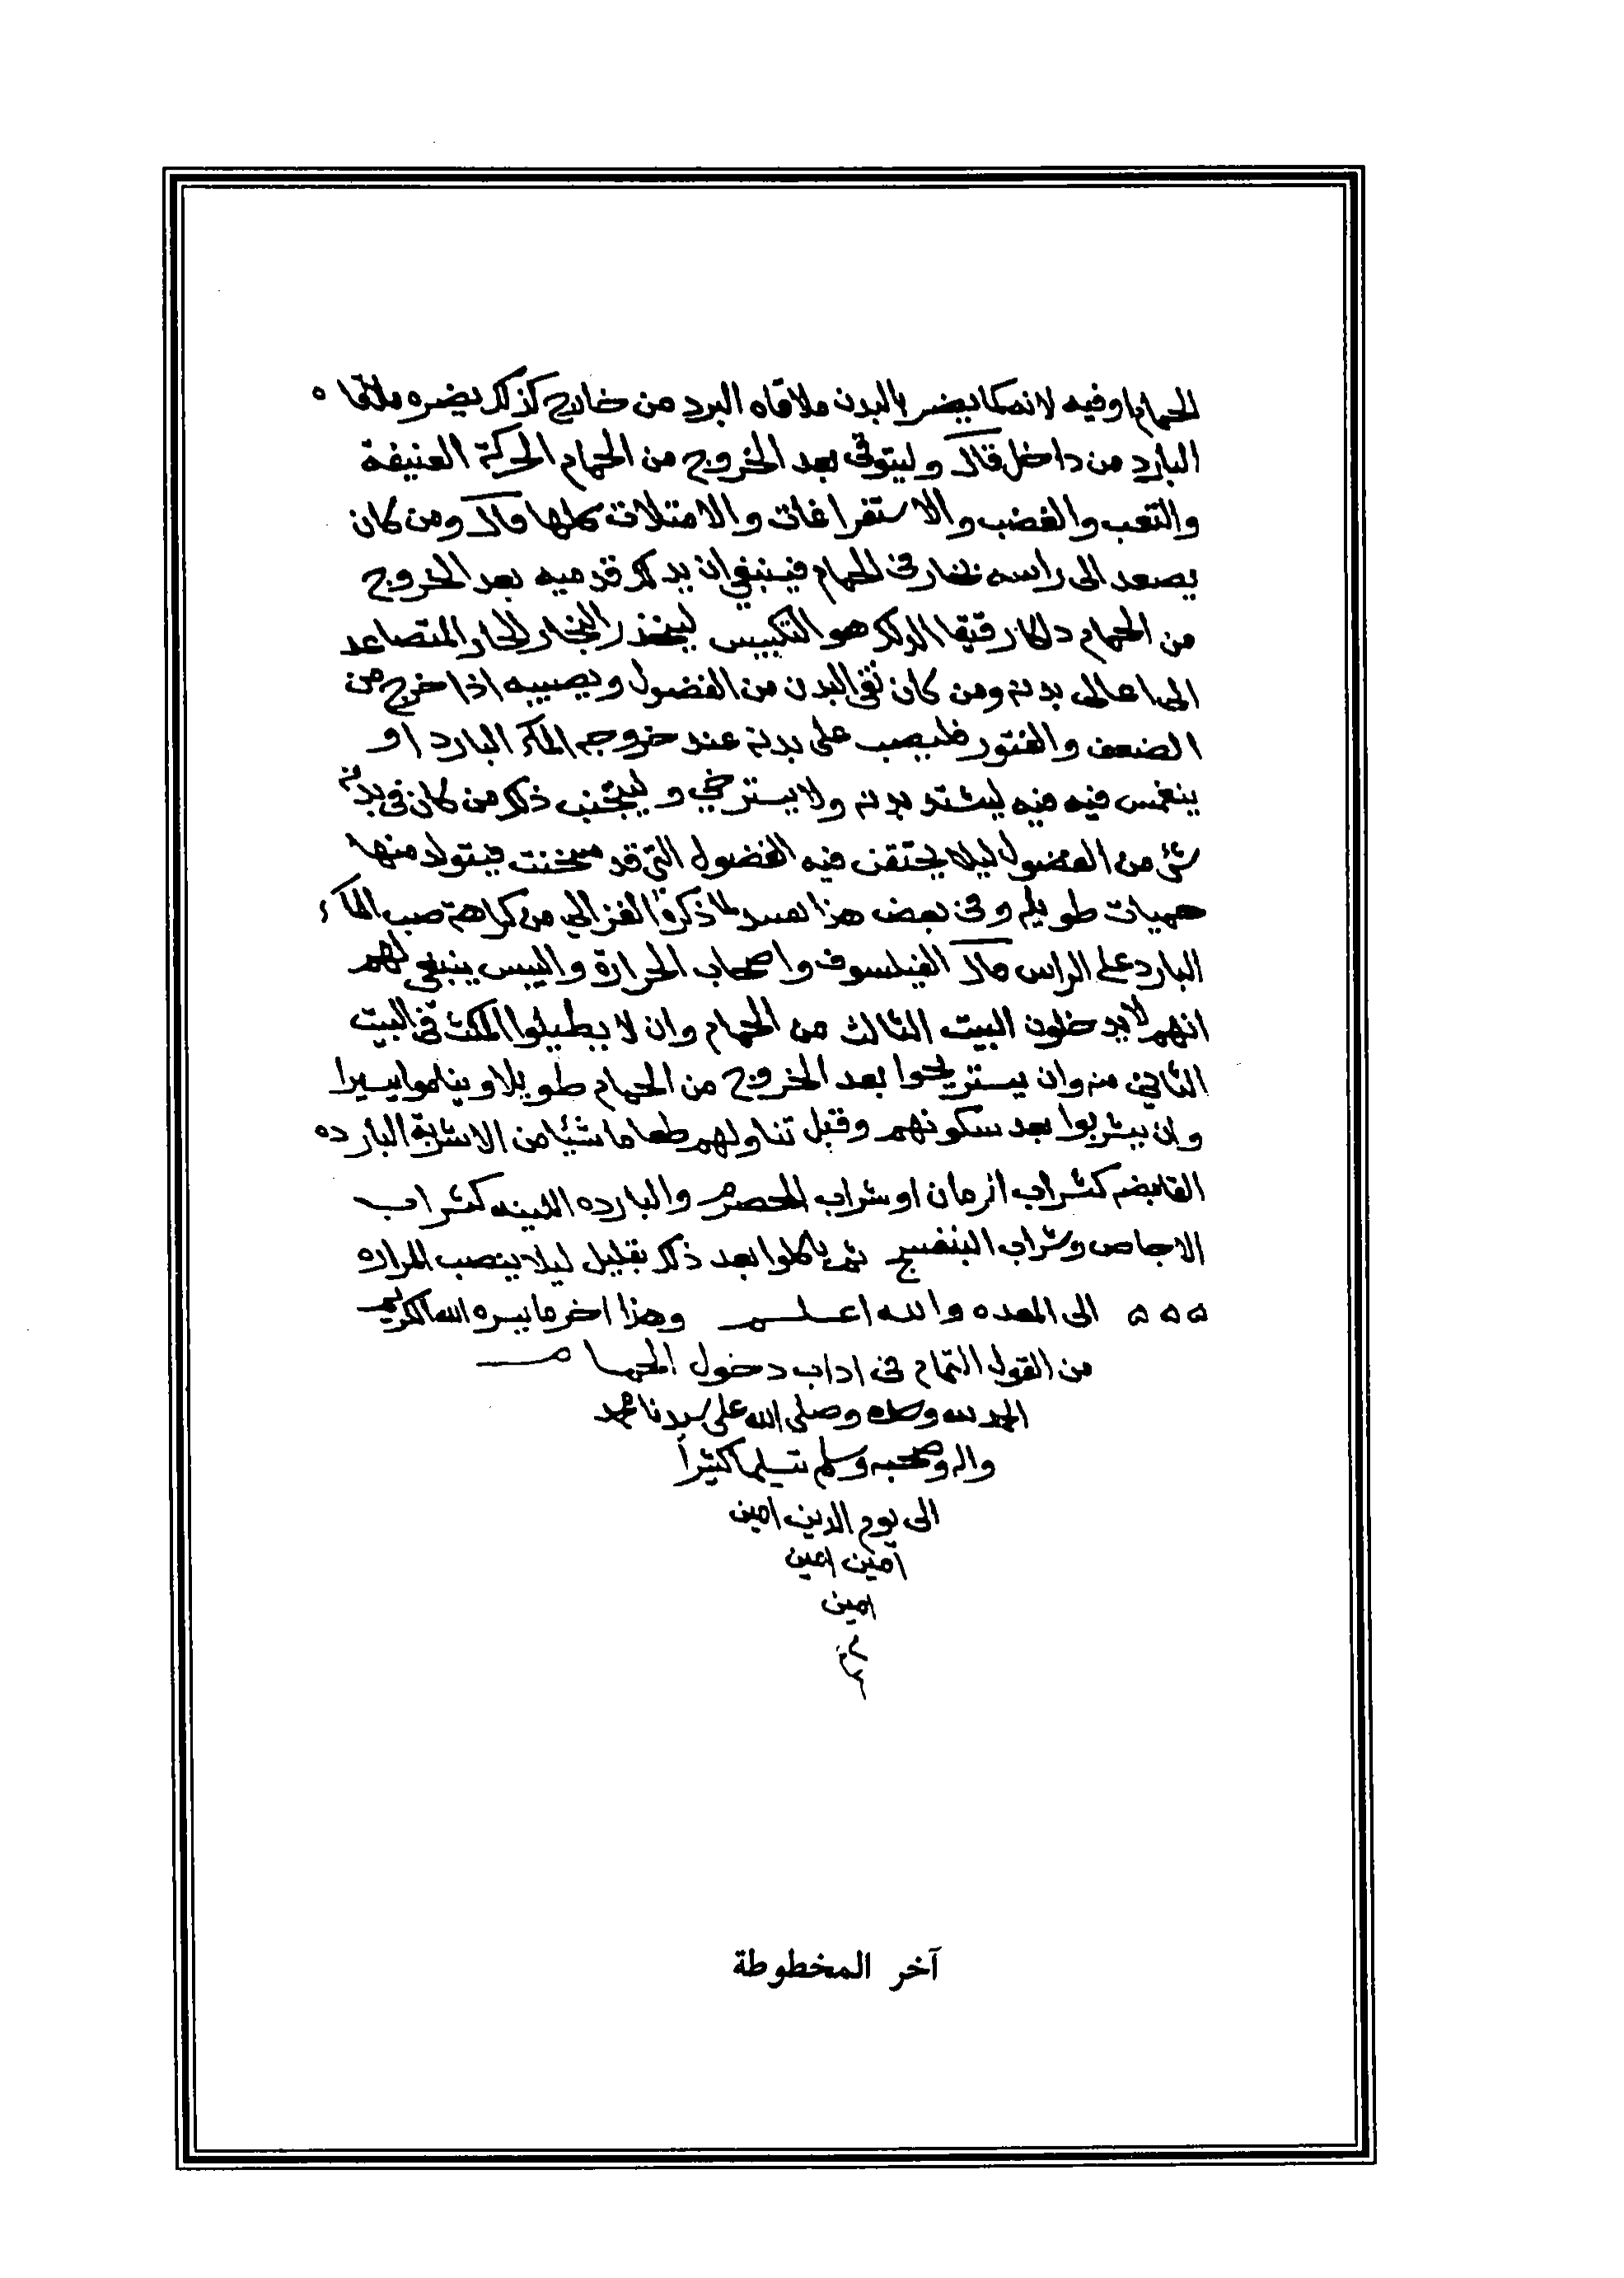 الحمام او فيه لانه كما يضر بالبدن ملاقاه البرد من خارج كذلك يضره ملاقاه
البارد من داخل قال وليتوقى بعد الخروج من الحمام الحركة العنيفة
والتعب والغضب والاستفراغات والامتلات كلها قال ومن كان
يصعد الى راسه بخار في الحمام فينبغي ان يدلك قدميه بعد الخروج
من الحمام دلكا رقيقا الدلك هو التكبيس لينحدر البخار الحار المتصاعد
الى اعالى بدنه ومن كان نقي البدن من الفضول ويصيبه اذا خرج من
الضعف والفتور فليصب على بدنه عند خروجه الماء البارد او
ينغمس فيه فيه ليشتد بدنه ولا يسترخي وليتجنب ذلك من كان في بدنه
شئ من الفضول ليلا يحتقن فيه الفضول التي قد سخنت فيتولد منها
حميات طويله وفي بعض هذا لما ذكره الغزالي من كراهة صب الماء
البارد على الراس قال الفيلسوف واصحاب الحرارة واليبس ينبغي لهم
انهم لا يدخلون البيت الثالث من الحمام وان لا يطيلوا المكث في البيت
الثاني منه وان يستريحوا بعد الخروج من الحمام طويلا ويناموا يسيرا
وان يشربوا بعد سكونهم وقبل تناولهم طعاما شيئا من الاشربة البارده
القابضه كشراب الرمان او شراب الحصرم والبارده اللينه كشراب
الاجاص وشراب البنفسج ثم ياكلوا بعد ذلك بقليل ليلا ينصب المراره
الى المعده والله اعلم وهذا اخر ما يسره الله الكريم
من القول التمام في اداب دخول الحمام
الحمد لله وحده وصلى الله على سيدنا محمد
واله وصحبه وسلم تسليما كثيرا
الى يوم الدين امين
امين امين
امين
آخر المخطوطة